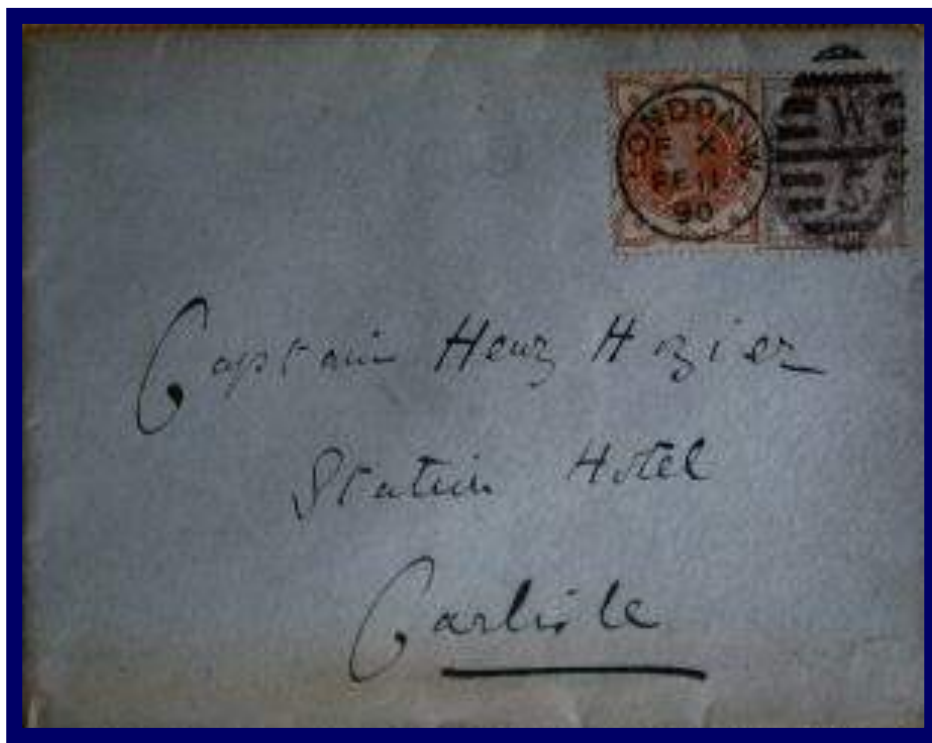 LONDON.W
E X
FE 11
90
W
5
Captain Henry Hozier
Station Hotel
Carlisle